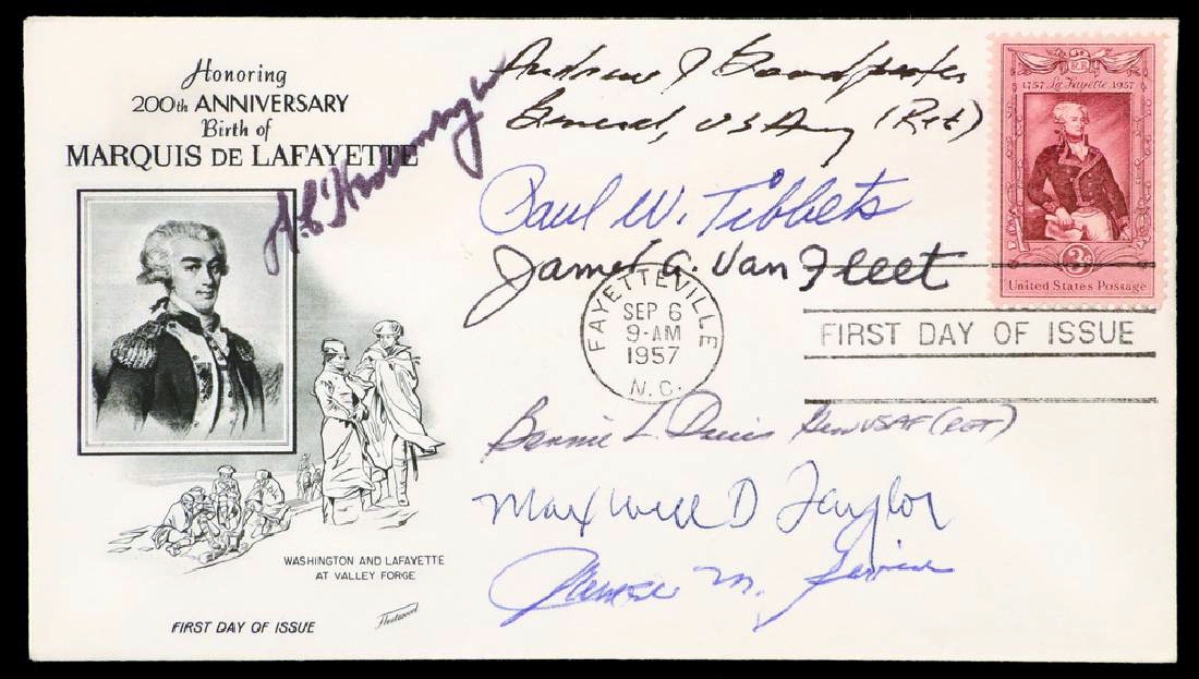 Honoring
200th ANNIVERSARY
Birth of
MARQUIS DE LAFAYETTE
Andrew J Goodpaster
General, US Army (Ret)
Paul W. Tibbets
James A. Van Fleet
1757 La Fayette 1957
3¢
United States Postage
FAYETTEVILLE
SEP 6
9-AM
1957
N.C.
FIRST DAY OF ISSUE
Bennie L. Davis Gen USAF (RET)
Maxwell D Taylor
James M. Gavin
WASHINGTON AND LAFAYETTE
AT VALLEY FORGE
Fleetwood
FIRST DAY OF ISSUE